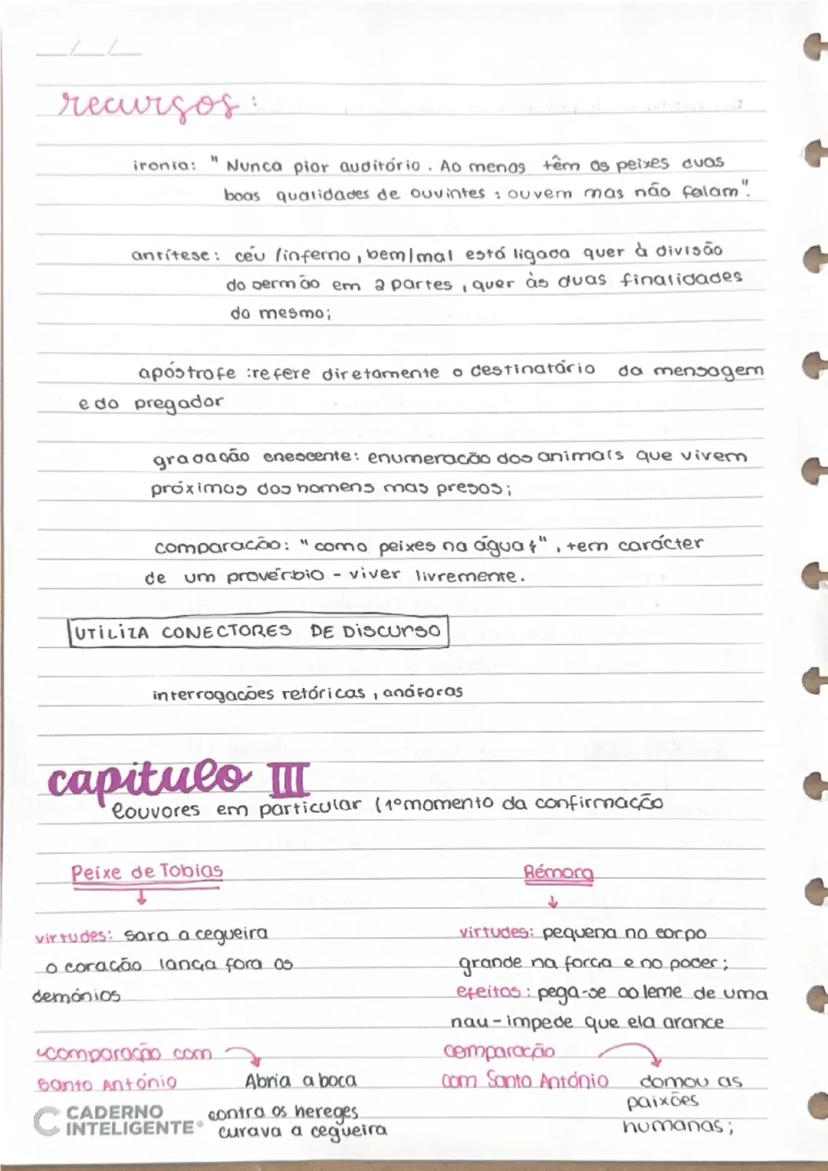 __/__/__
recursos:
ironia: "Nunca pior auditório. Ao menos têm os peixes duas
boas qualidades de ouvintes: ouvem mas não falam".
antítese: céu/inferno, bem/mal está ligada quer à divisão
do sermão em 2 partes, quer às duas finalidades
do mesmo;
apóstrofe: refere diretamente o destinatário da mensagem
e do pregador
gradação crescente: enumeracão dos animais que vivem
próximos dos homens mas presos;
comparacão: "como peixes na água", tem carácter
de um provérbio - viver livremente.
UTILIZA CONECTORES DE DISCURSO
interrogacões retóricas, anáforas
capitulo III
louvores em particular (1º momento da confirmação
Peixe de Tobias
Rémora
virtudes: sara a cegueira
o coração lança fora os
demónios
virtudes: pequena no corpo
grande na forca e no poder;
efeitos: pega-se ao leme de uma
nau-impede que ela avance
comparação com
Santo António
Abria a boca
contra os hereges
curava a cegueira
comparação
com Santo António
domou as
paixões
humanas;
CADERNO
INTELIGENTE®